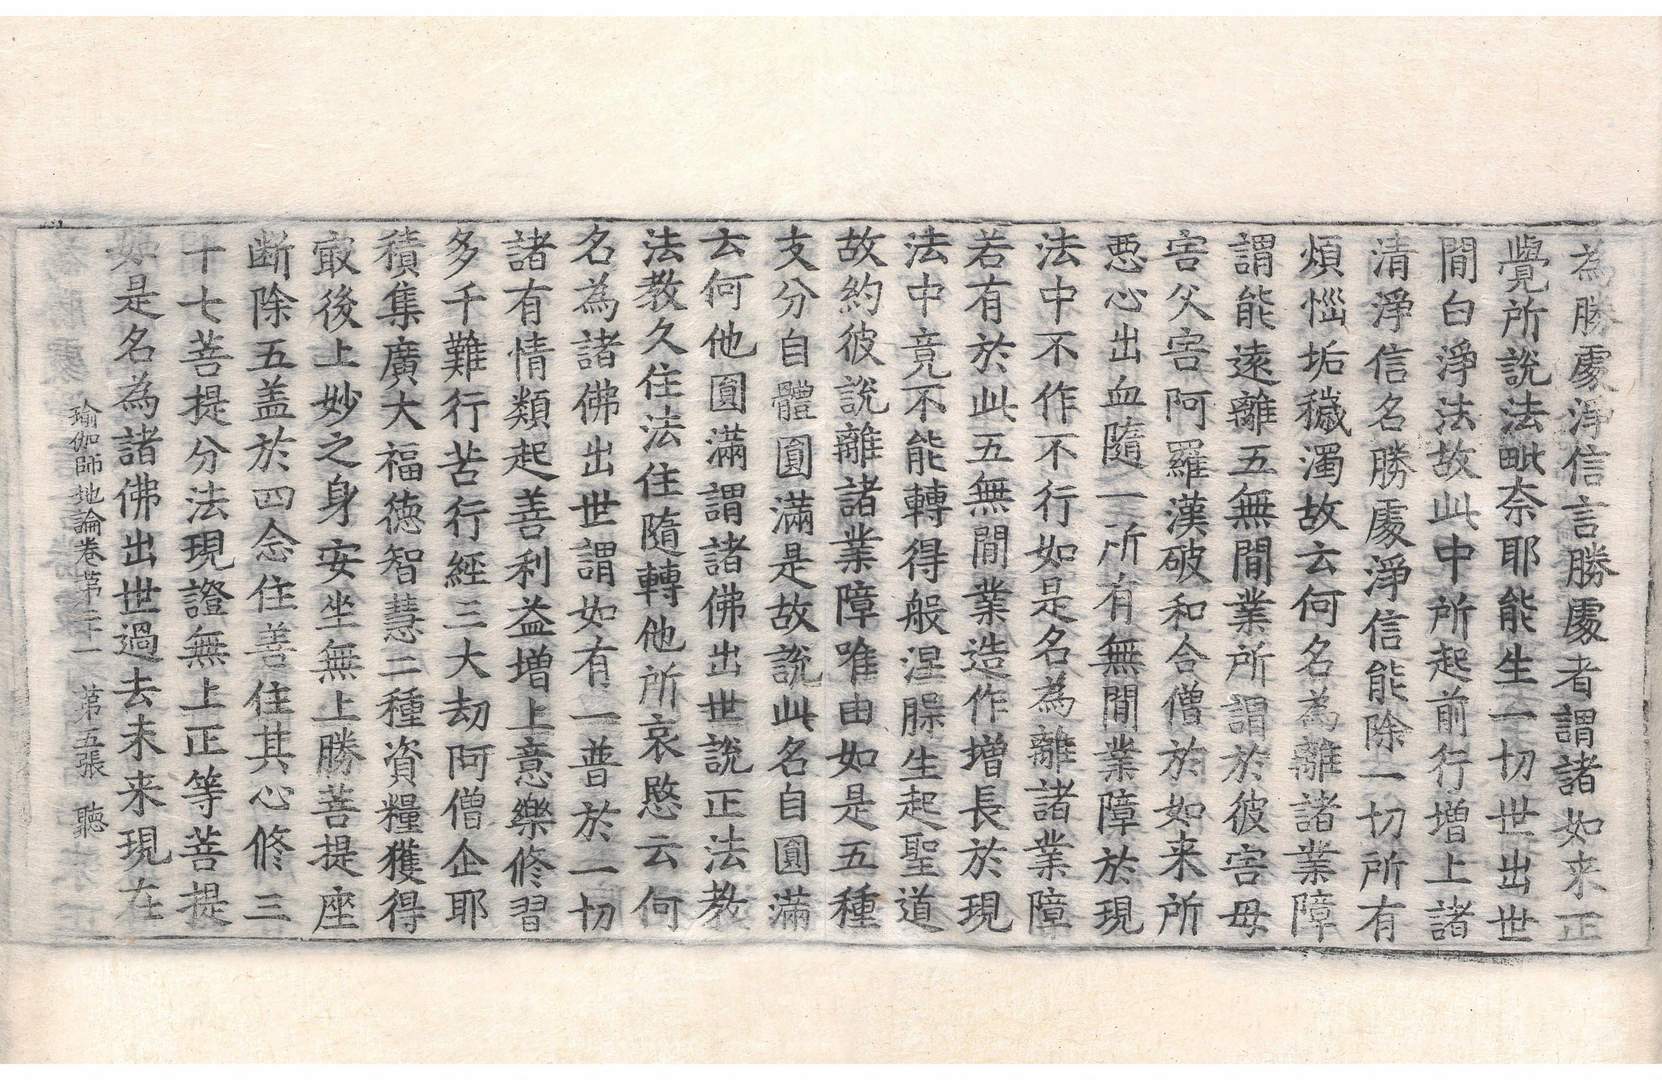 為勝處淨信言勝處者謂諸如来正
覺所說法毗奈耶能生一切世出世
間白淨法故此中所起前行增上諸
清淨信名勝處淨信能除一切所有
煩惱垢穢濁故云何名為離諸業障
謂能遠離五無間業所謂於彼害母
害父害阿羅漢破和合僧於如来所
惡心出血隨一所有無間業障於現
法中不作不行如是名為離諸業障
若有於此五無間業造作增長於現
法中竟不能轉得般涅槃生起聖道
故約彼說離諸業障唯由如是五種
支分自體圓滿是故說此名自圓滿
云何他圓滿謂諸佛出世說正法教
法教久住法住隨轉他所哀愍云何
名為諸佛出世謂如有一普於一切
諸有情類起善利益增上意樂修習
多千難行苦行經三大劫阿僧企耶
積集廣大福德智慧二種資糧獲得
最後上妙之身安坐無上勝菩提座
断除五盖於四念住善住其心修三
十七菩提分法現證無上正等菩提
如是名為諸佛出世過去未来現在
瑜伽師地論卷第二十一　第五張　聽